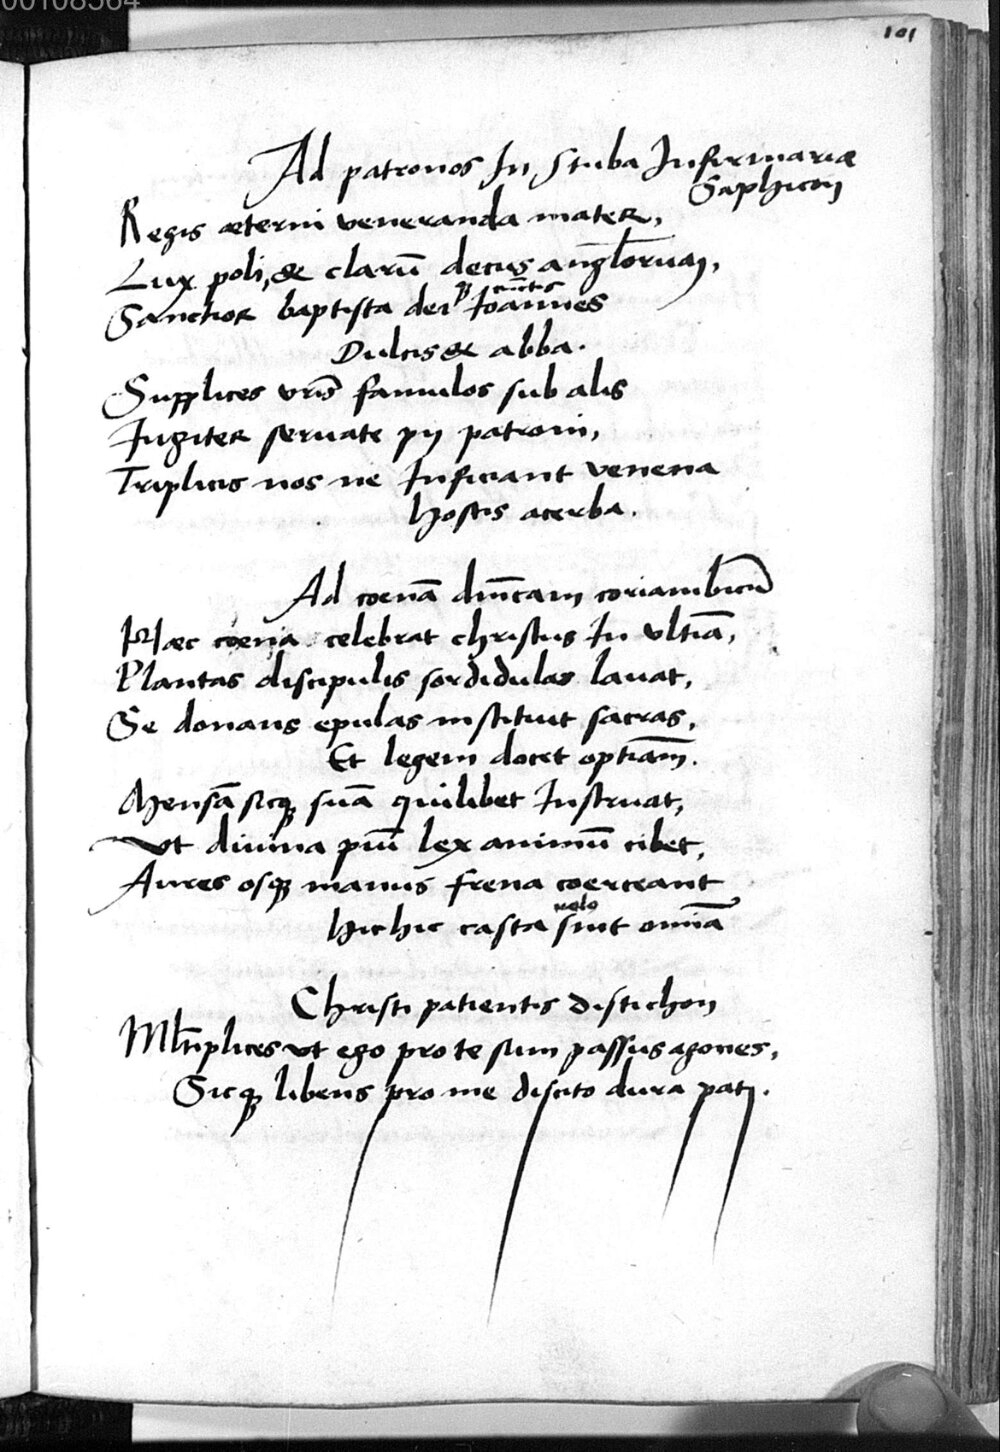 00108564
101
Ad patronos In Stuba Infirmariæ
Saphicon
Regis æterni veneranda mater,
Lux poli, & clarū decus angl̄orum,
cūctis
Sanctior baptista dei Ioannes
Dulcis & abba.
Supplices vr̄is famulos sub alis
Iugiter seruate pij patroni,
Triplicis nos ne Inficiant venena
hostis acerba.
Ad coenā dn̄icam coriambicū
Hæc coena celebrat christus In vltiā,
Plantas discipulis sordidulas lauat,
Se donans epulas instituit sacras,
Et legem docet optiam̄.
Mensā sicq suā quilibet Instruat,
Vt diuina piū lex animū cibet,
Aures osq manus frena coerceant
melo
hic hic casta sint omiā
Christi patientis distichon
Ml̄tiplices vt ego pro te sum passus agones,
Sicq libens pro me discito dura pati.